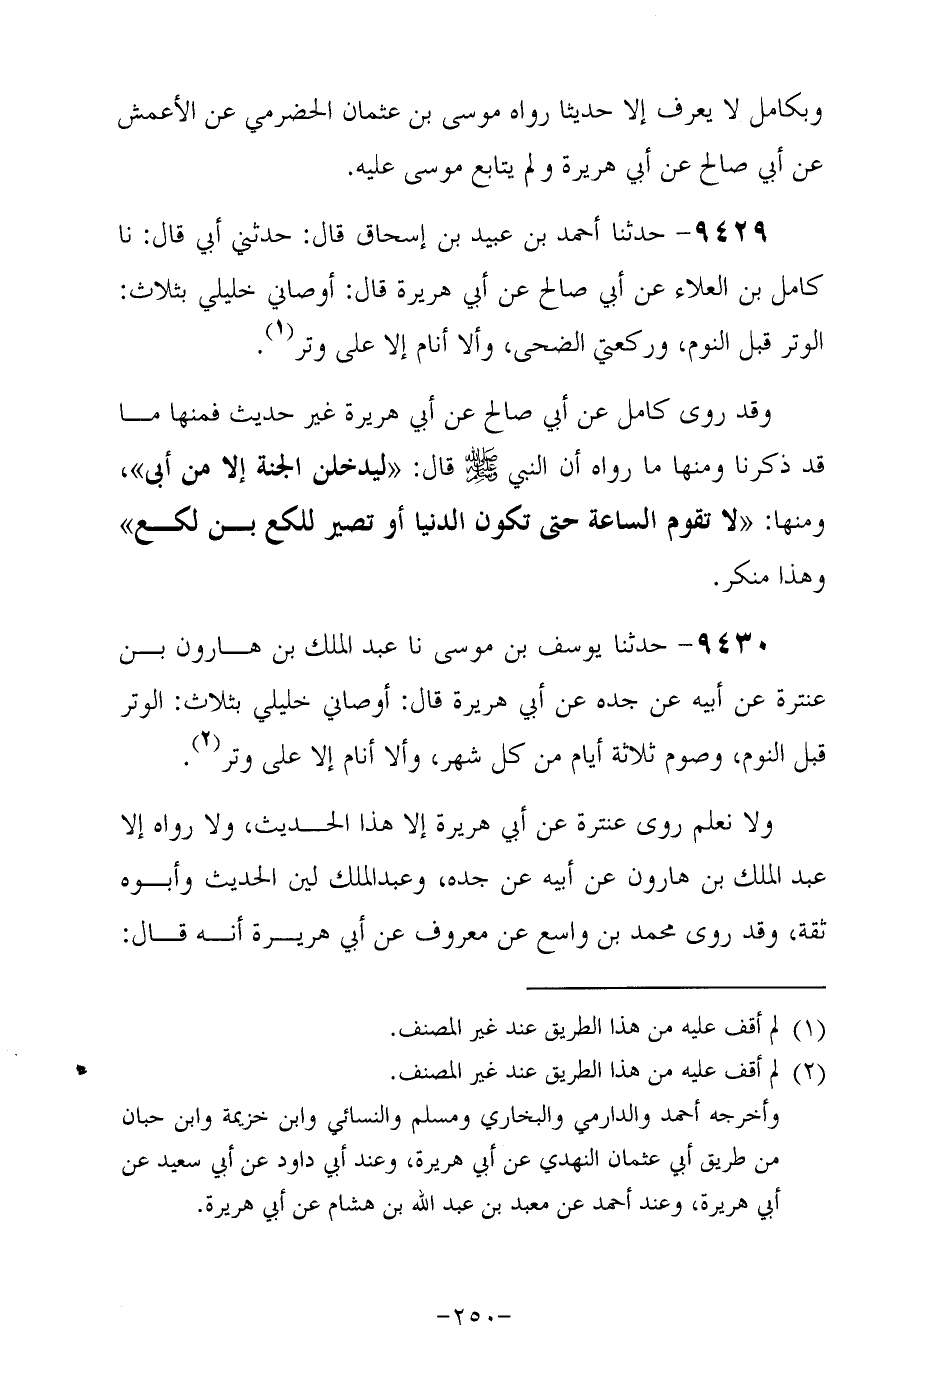 وبكامل لا يعرف إلا حديثا رواه موسى بن عثمان الحضرمي عن الأعمش
عن أبي صالح عن أبي هريرة و لم يتابع موسى عليه.
٩٤٢٩- حدثنا أحمد بن عبيد بن إسحاق قال: حدثني أبي قال: نا
كامل بن العلاء عن أبي صالح عن أبي هريرة قال: أوصاني خليلي بثلاث:
الوتر قبل النوم، وركعتي الضحى، وألا أنام إلا على وتر(١).
وقد روى كامل عن أبي صالح عن أبي هريرة غير حديث فمنها مـــا
قد ذكرنا ومنها ما رواه أن النبي ﷺ قال: «ليدخلن الجنة إلا من أبى»،
ومنها: «لا تقوم الساعة حتى تكون الدنيا أو تصير للكع بـــن لكـــع»
وهذا منكر.
٩٤٣٠- حدثنا يوسف بن موسى نا عبد الملك بن هـــارون بـــن
عنترة عن أبيه عن جده عن أبي هريرة قال: أوصاني خليلي بثلاث: الوتر
قبل النوم، وصوم ثلاثة أيام من كل شهر، وألا أنام إلا على وتر(٢).
ولا نعلم روى عنترة عن أبي هريرة إلا هذا الحـــديث، ولا رواه إلا
عبد الملك بن هارون عن أبيه عن جده، وعبدالملك لين الحديث وأبـــوه
ثقة، وقد روى محمد بن واسع عن معروف عن أبي هريـــرة أنـــه قـــال:
(١) لم أقف عليه من هذا الطريق عند غير المصنف.
(٢) لم أقف عليه من هذا الطريق عند غير المصنف.
وأخرجه أحمد والدارمي والبخاري ومسلم والنسائي وابن خزيمة وابن حبان
من طريق أبي عثمان النهدي عن أبي هريرة، وعند أبي داود عن أبي سعيد عن
أبي هريرة، وعند أحمد عن معبد بن عبد الله بن هشام عن أبي هريرة.
-٢٥٠-